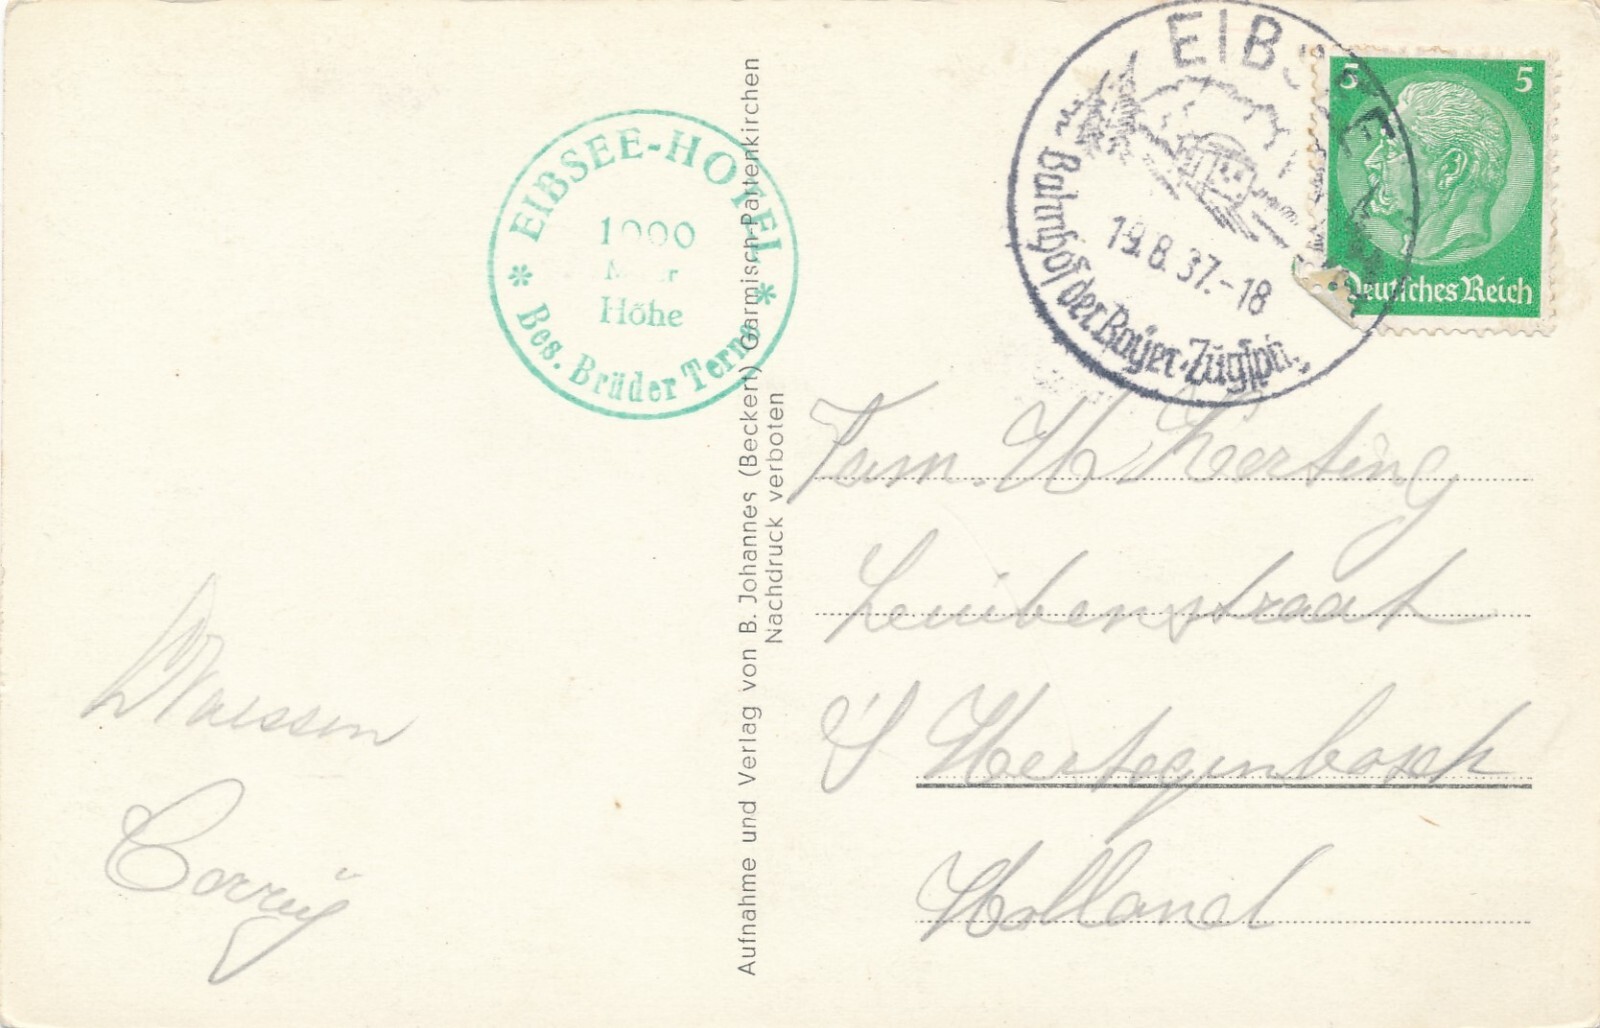 EIBSEE-HOTEL
1000
Meter
Höhe
Bes. Brüder Terne
EIBSEE
19.8.37.-18
Bahnhof der Bayer. Zugspitz
5 5
Deutsches Reich
Aufnahme und Verlag von B. Johannes (Beckert) Garmisch-Partenkirchen
Nachdruck verboten
Fam. H Kersting
straat
's Hertogenbosch
Holland
Corrij